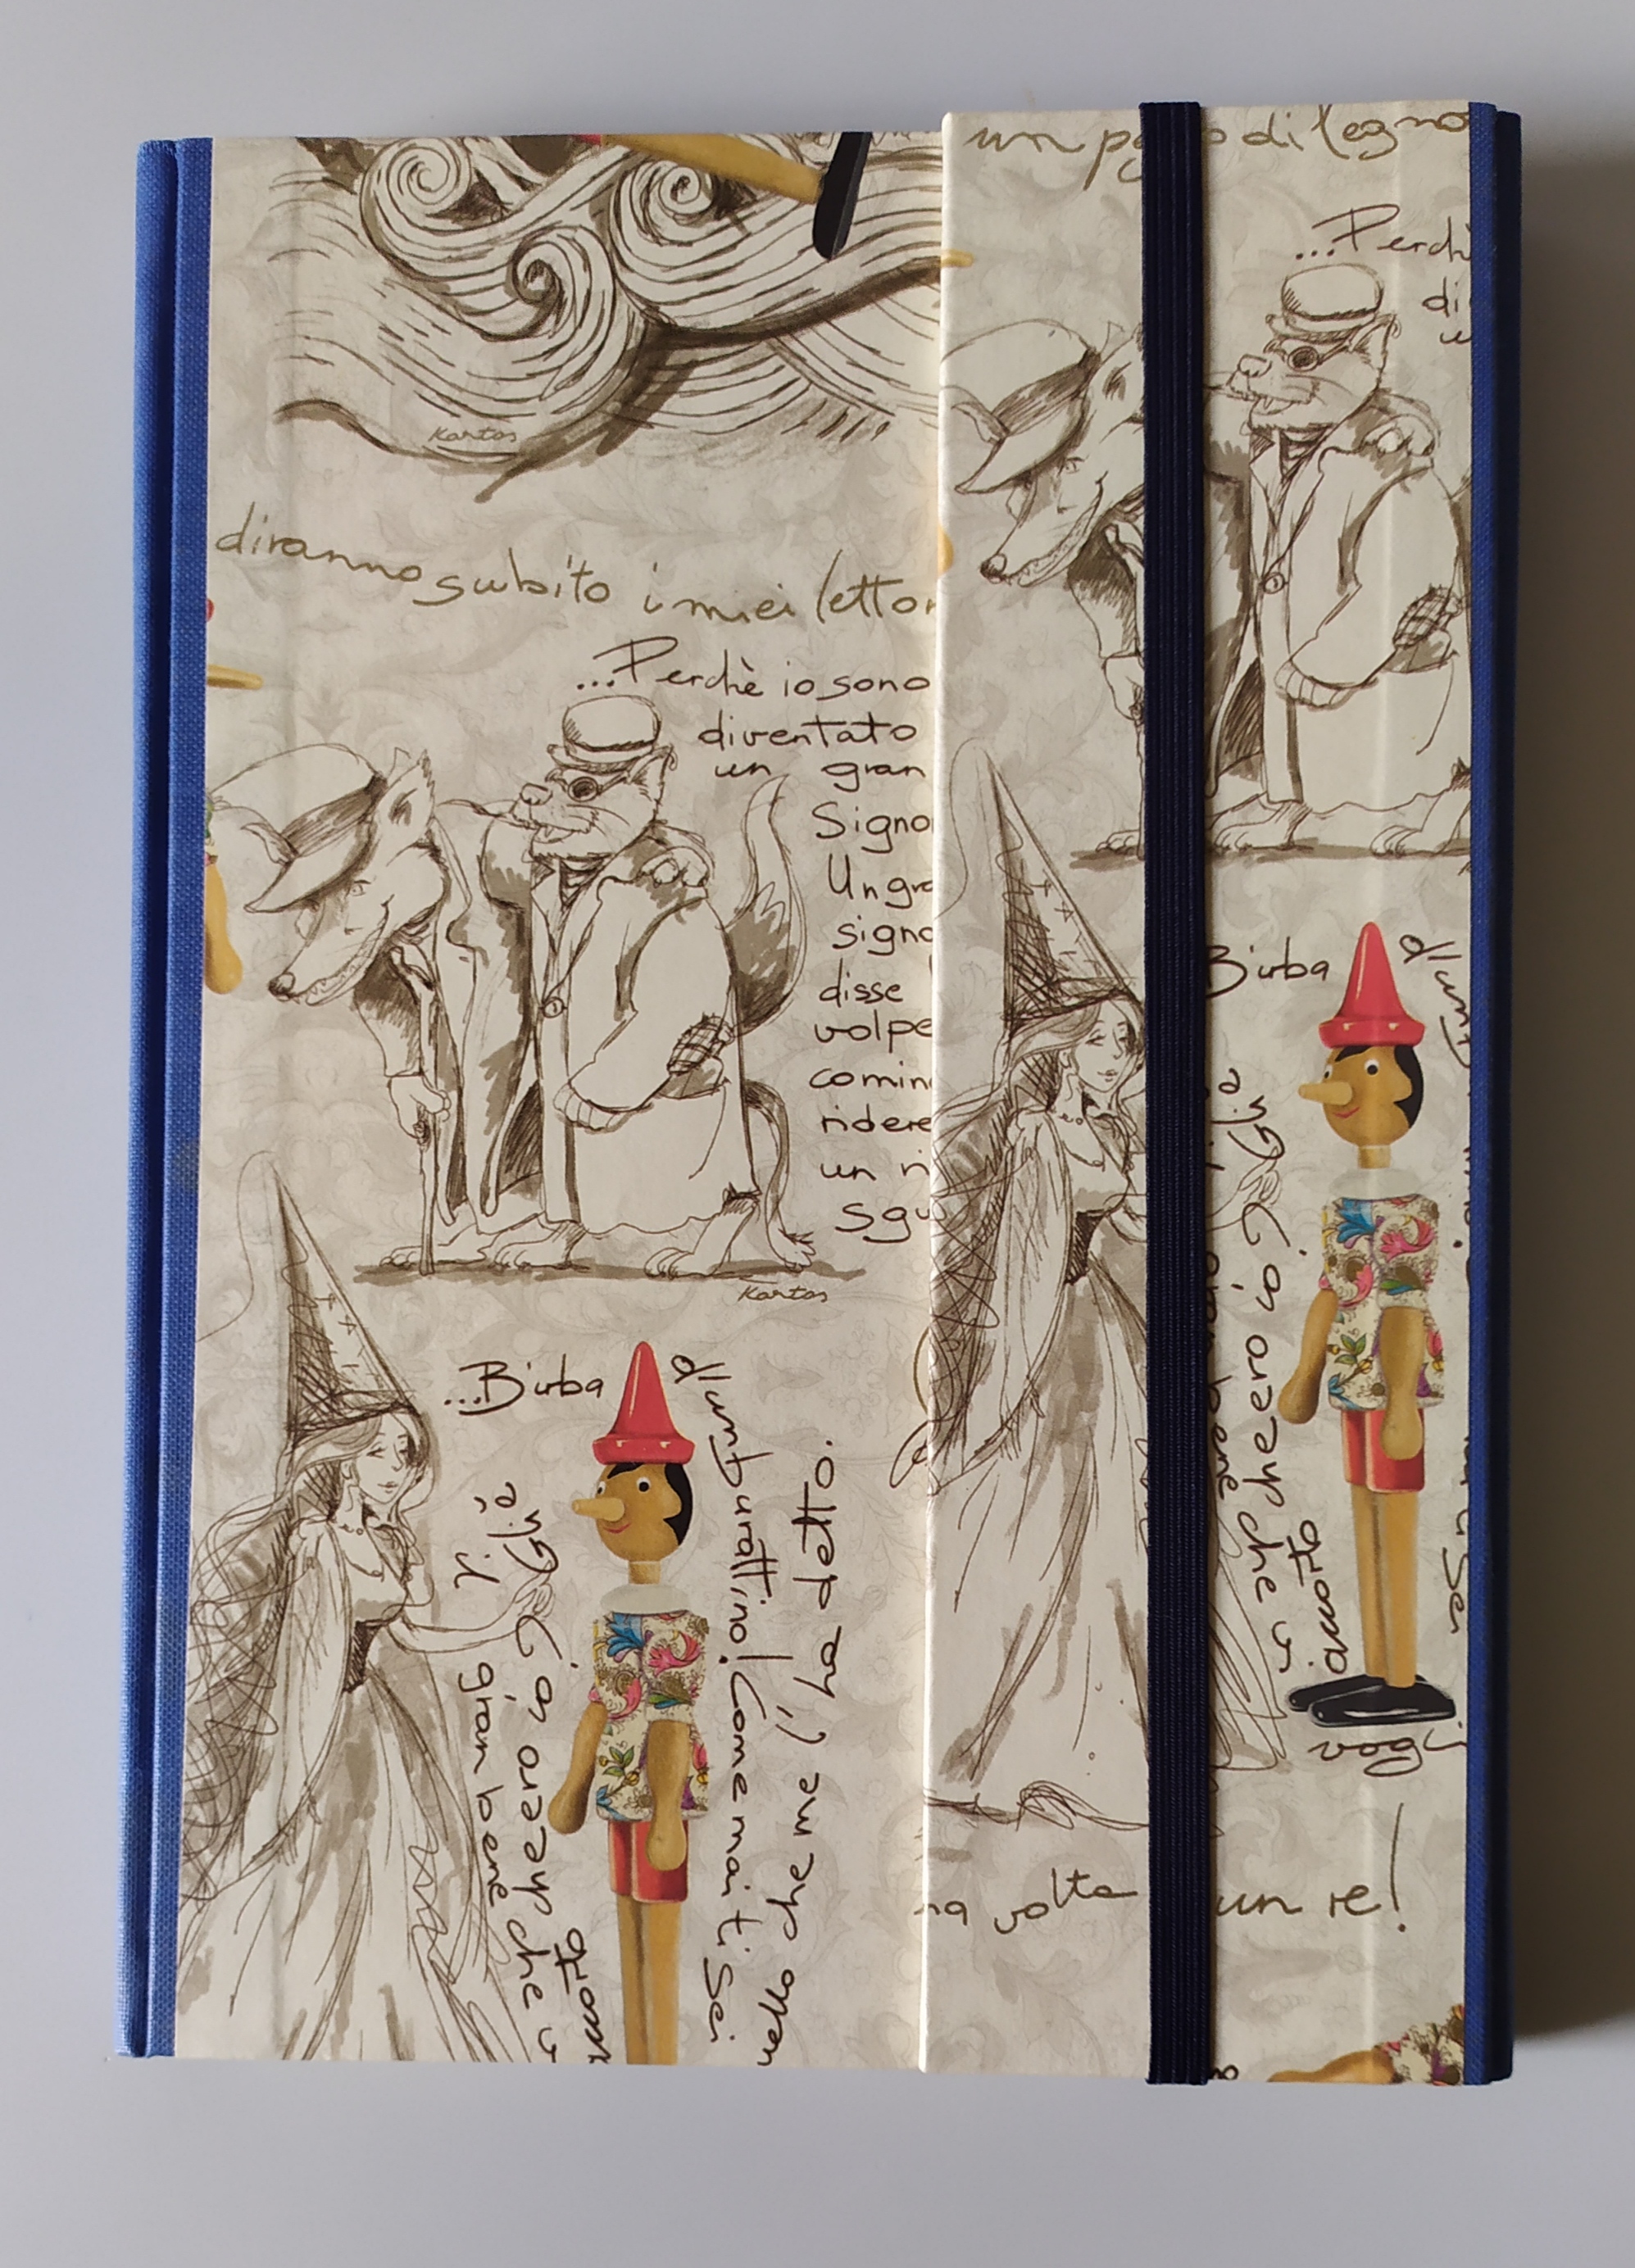 Kartos
diranno subito i miei lettor
...Perchè io sono
diventato
un gran
Signo
Un gra
signo
disse
volpe
cominc
ridere
un ri
sgu
Kartos
...Birba
d'un burattino! Come mai ti sei
che me l'ha detto.
gran bene
che ero io
un p di legno
...Perchè
di
u
Birba
che ero io
bene
vogl
na volta
un re!